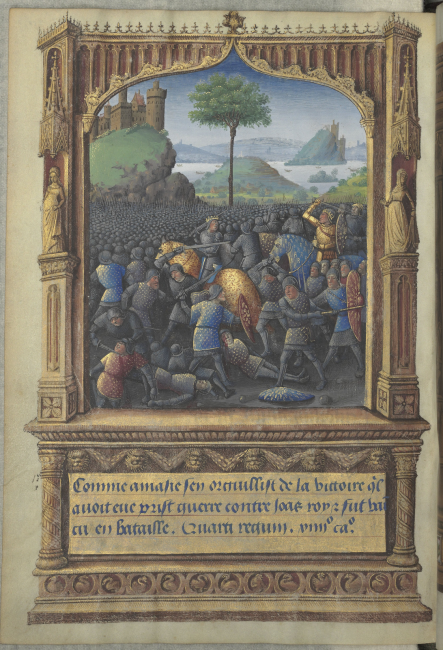 Comme amasie sen orguillist de la victoire ql
auoit eue prist guerre contre Joas roy ꝛ fut vai
cu en bataille. Quarti regum. xiiijº. caº.